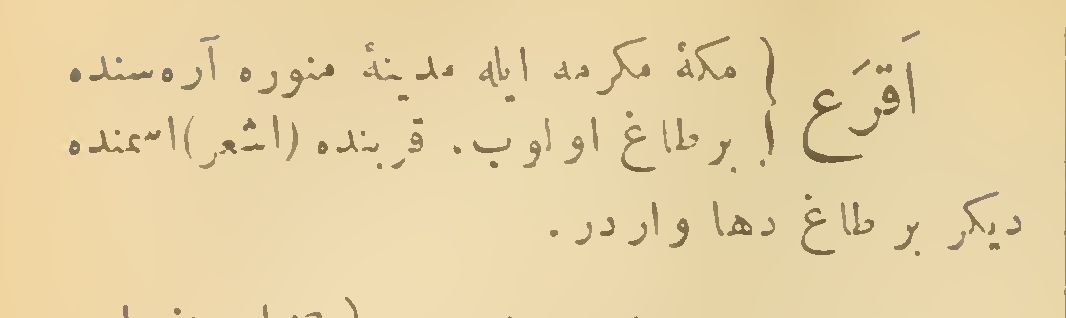 اَقرَع { مکهٔ مکرمه ایله مدینهٔ منوره آره‌سنده
بر طاغ اولوب. قربنده (اشعر) اسمنده
دیکر بر طاغ دها واردر.